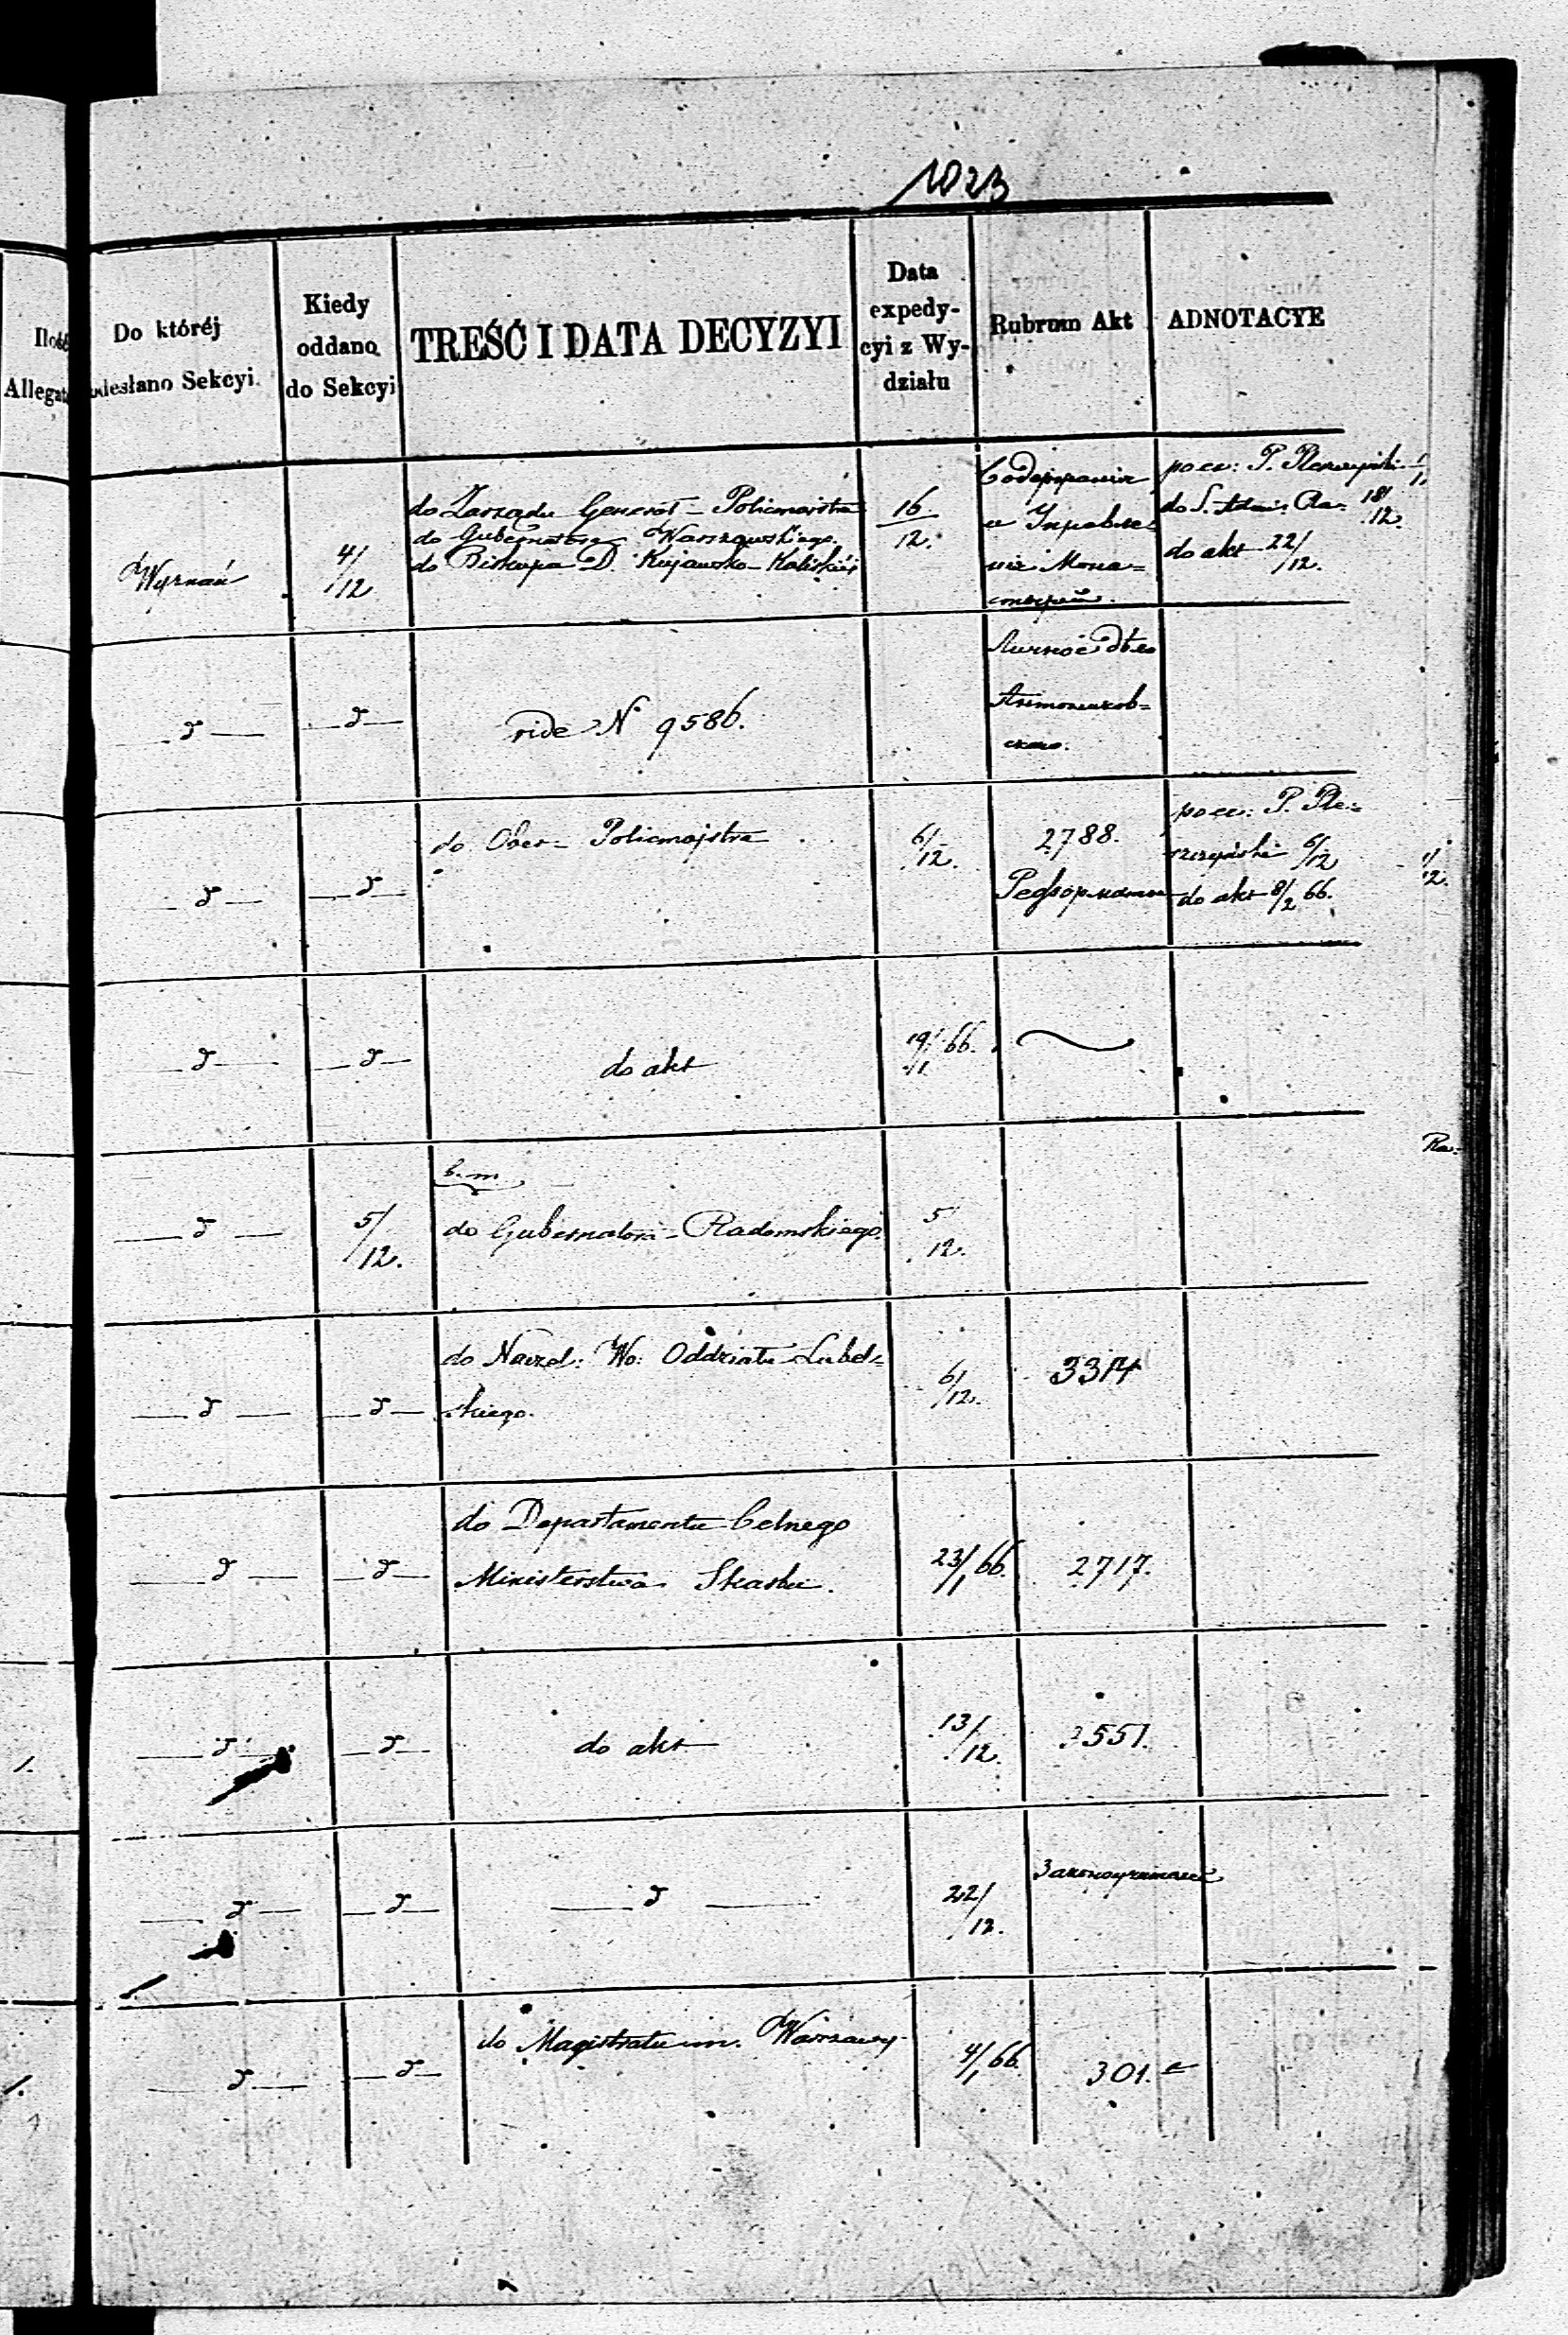 1023
Ilość
Allegat
Do któréj
odesłano Sekcyi.
Kiedy
oddano
do Sekcyi
TREŚĆ I DATA DECYZYI
Data
expedy-
cyi z Wy-
działu
Rubrum Akt
ADNOTACYE
Wyznań
4/12
do Zarządu Generał-Policmajstra
do Gubernatora Warszawskiego.
do Biskupa D. Kujawsko-Kaliskiéj
16/12.
Содержание
и Управле=
ніе Мона=
стырей.
do akt 22/12.
d
d
vide N 9586.
Личное дѣло
d
d
do Ober-Policmajstra
6/12.
2788.
do akt 8/2 66.
d
d
do akt
19/1 66.
d
5/12.
b. m.
do Gubernatora Radomskiego
5/12.
d
d
do Naczel: Wo: Oddziału Lubel=
skiego.
6/12.
3314
d
d
do Departamentu Celnego
Ministerstwa Skarbu.
23/1 66.
2717.
d
d
do akt
13/12.
1.
d
d
d
22/12.
d
d
do Magistratu m. Warszawy
4/1 66.
301.
1.